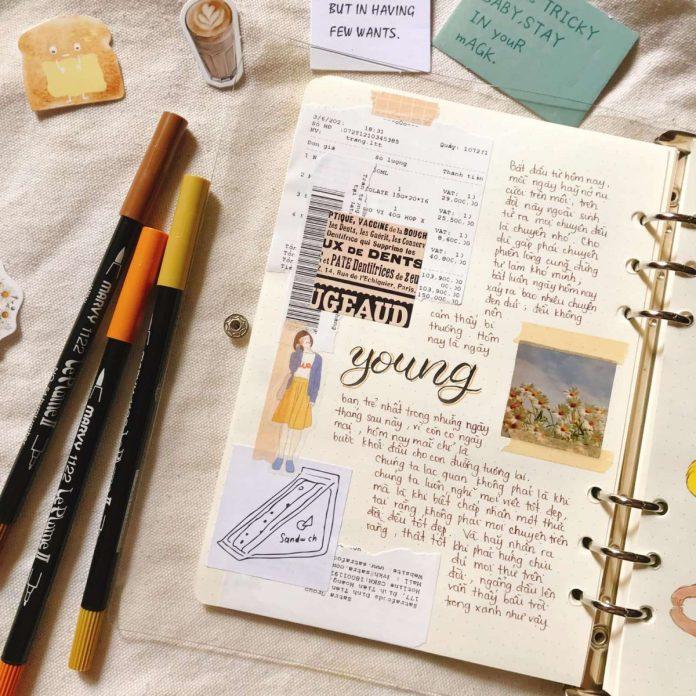 BUT IN HAVING
FEW WANTS.
TRICKY
BABY, STAY
IN YOUR
mAGK.
MARVY 1122 Le Plume II
MARVY 1122 Le Plume II
3/6/202
18:31
Số HĐ :07271210345385
NV: trang.ltt
Quầy: 107271
Đơn giá
Số lượng
Thành tiền
50ML
1
VAT: 1)
29,000.00
OLATE 150*20*16
1
VAT: 1)
25,500.00
HO VI 40G HOP X
1
VAT: 1)
8,600.00
VAT: 1)
40,800.00
103,900.00
103,900.00
150,000.00
PTIQUE, VACCINE de la BOUCH
les Dents, les Guérit, les Conser
Dentifrice qui Supprime les
UX DE DENTS
et PATE Dentifrices de
14, Rue de l'Echiquier, Paris.
UGEAUD
Bắt đầu từ hôm nay,
mỗi ngày hãy nở nụ
cười trên môi, trên
đời này ngoài sinh
tử ra mọi chuyện đều
là chuyện nhỏ. Cho
dù gặp phải chuyện
phiền lòng cũng đừng
tự làm khó mình,
bất luận ngày hôm nay
xảy ra bao nhiêu chuyện
đen đủi, đều không
nên
cảm thấy bi
thương. Hôm
nay là ngày
young
bạn trẻ nhất trong những ngày
tháng sau này, vì còn có ngày
mai, hôm nay mãi chỉ là
bước khởi đầu cho con đường tương lai.
Chúng ta lạc quan không phải là khi
chúng ta luôn nghĩ mọi việc tốt đẹp,
mà là khi biết chấp nhận một thực
tại rằng không phải mọi chuyện trên
đời đều tốt đẹp. Và hãy nhận ra
rằng, thật tốt
khi phải hứng chịu
đủ mọi thứ trên
đời, ngẩng đầu lên
vẫn thấy bầu trời
trong xanh như vậy.
Sandwich